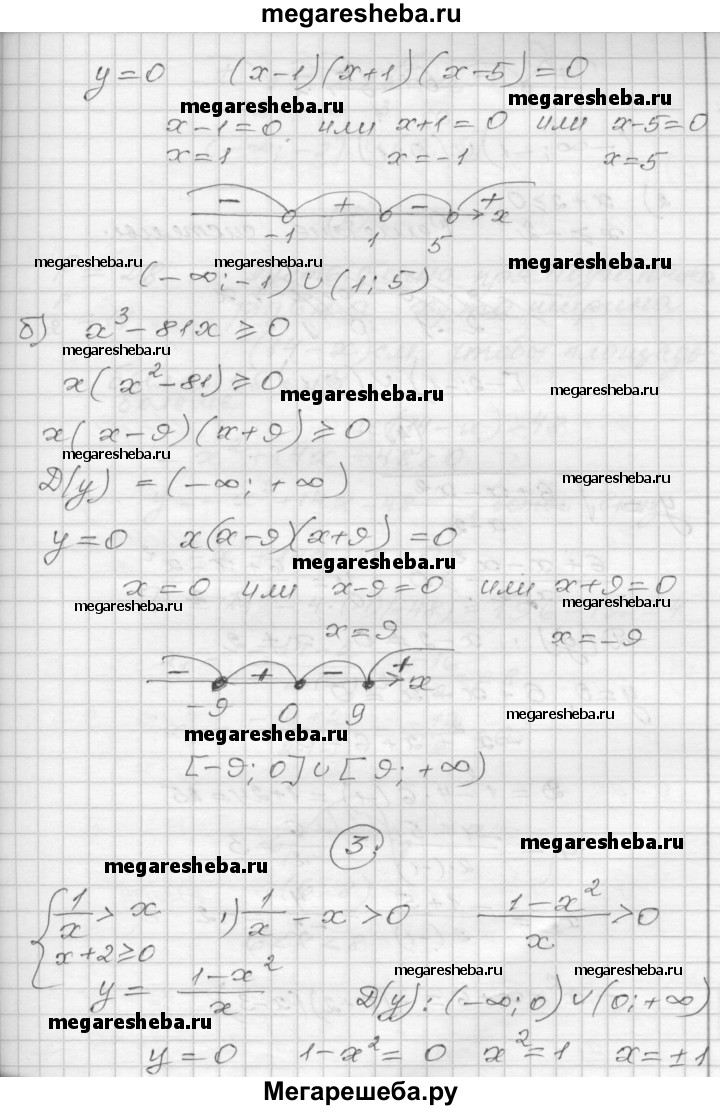 megaresheba.ru
y=0 (x-1)(x+1)(x-5)=0
megaresheba.ru megaresheba.ru
x-1=0 или x+1=0 или x-5=0
x=1 x=-1 x=5
- + - + x
-1 1 5
megaresheba.ru megaresheba.ru megaresheba.ru
(-∞;-1)∪(1;5)
б) x³-81x⩾0
megaresheba.ru megaresheba.ru
x(x²-81)⩾0
megaresheba.ru megaresheba.ru
x(x-9)(x+9)⩾0
Д(y) =(-∞;+∞)
y=0 x(x-9)(x+9)=0
megaresheba.ru
x=0 или x-9=0 или x+9=0
megaresheba.ru megaresheba.ru
x=9 x=-9
- + - + x
-9 0 9
megaresheba.ru megaresheba.ru
[-9;0]∪[9;+∞)
3.
megaresheba.ru megaresheba.ru
{ 1/x > x 1) 1/x - x > 0 (1-x²)/x > 0
x+2⩾0
y= (1-x²)/x Д(y): (-∞;0)∪(0;+∞)
megaresheba.ru megaresheba.ru megaresheba.ru
y=0 1-x²=0 x²=1 x=±1
Мегарешеба.ру